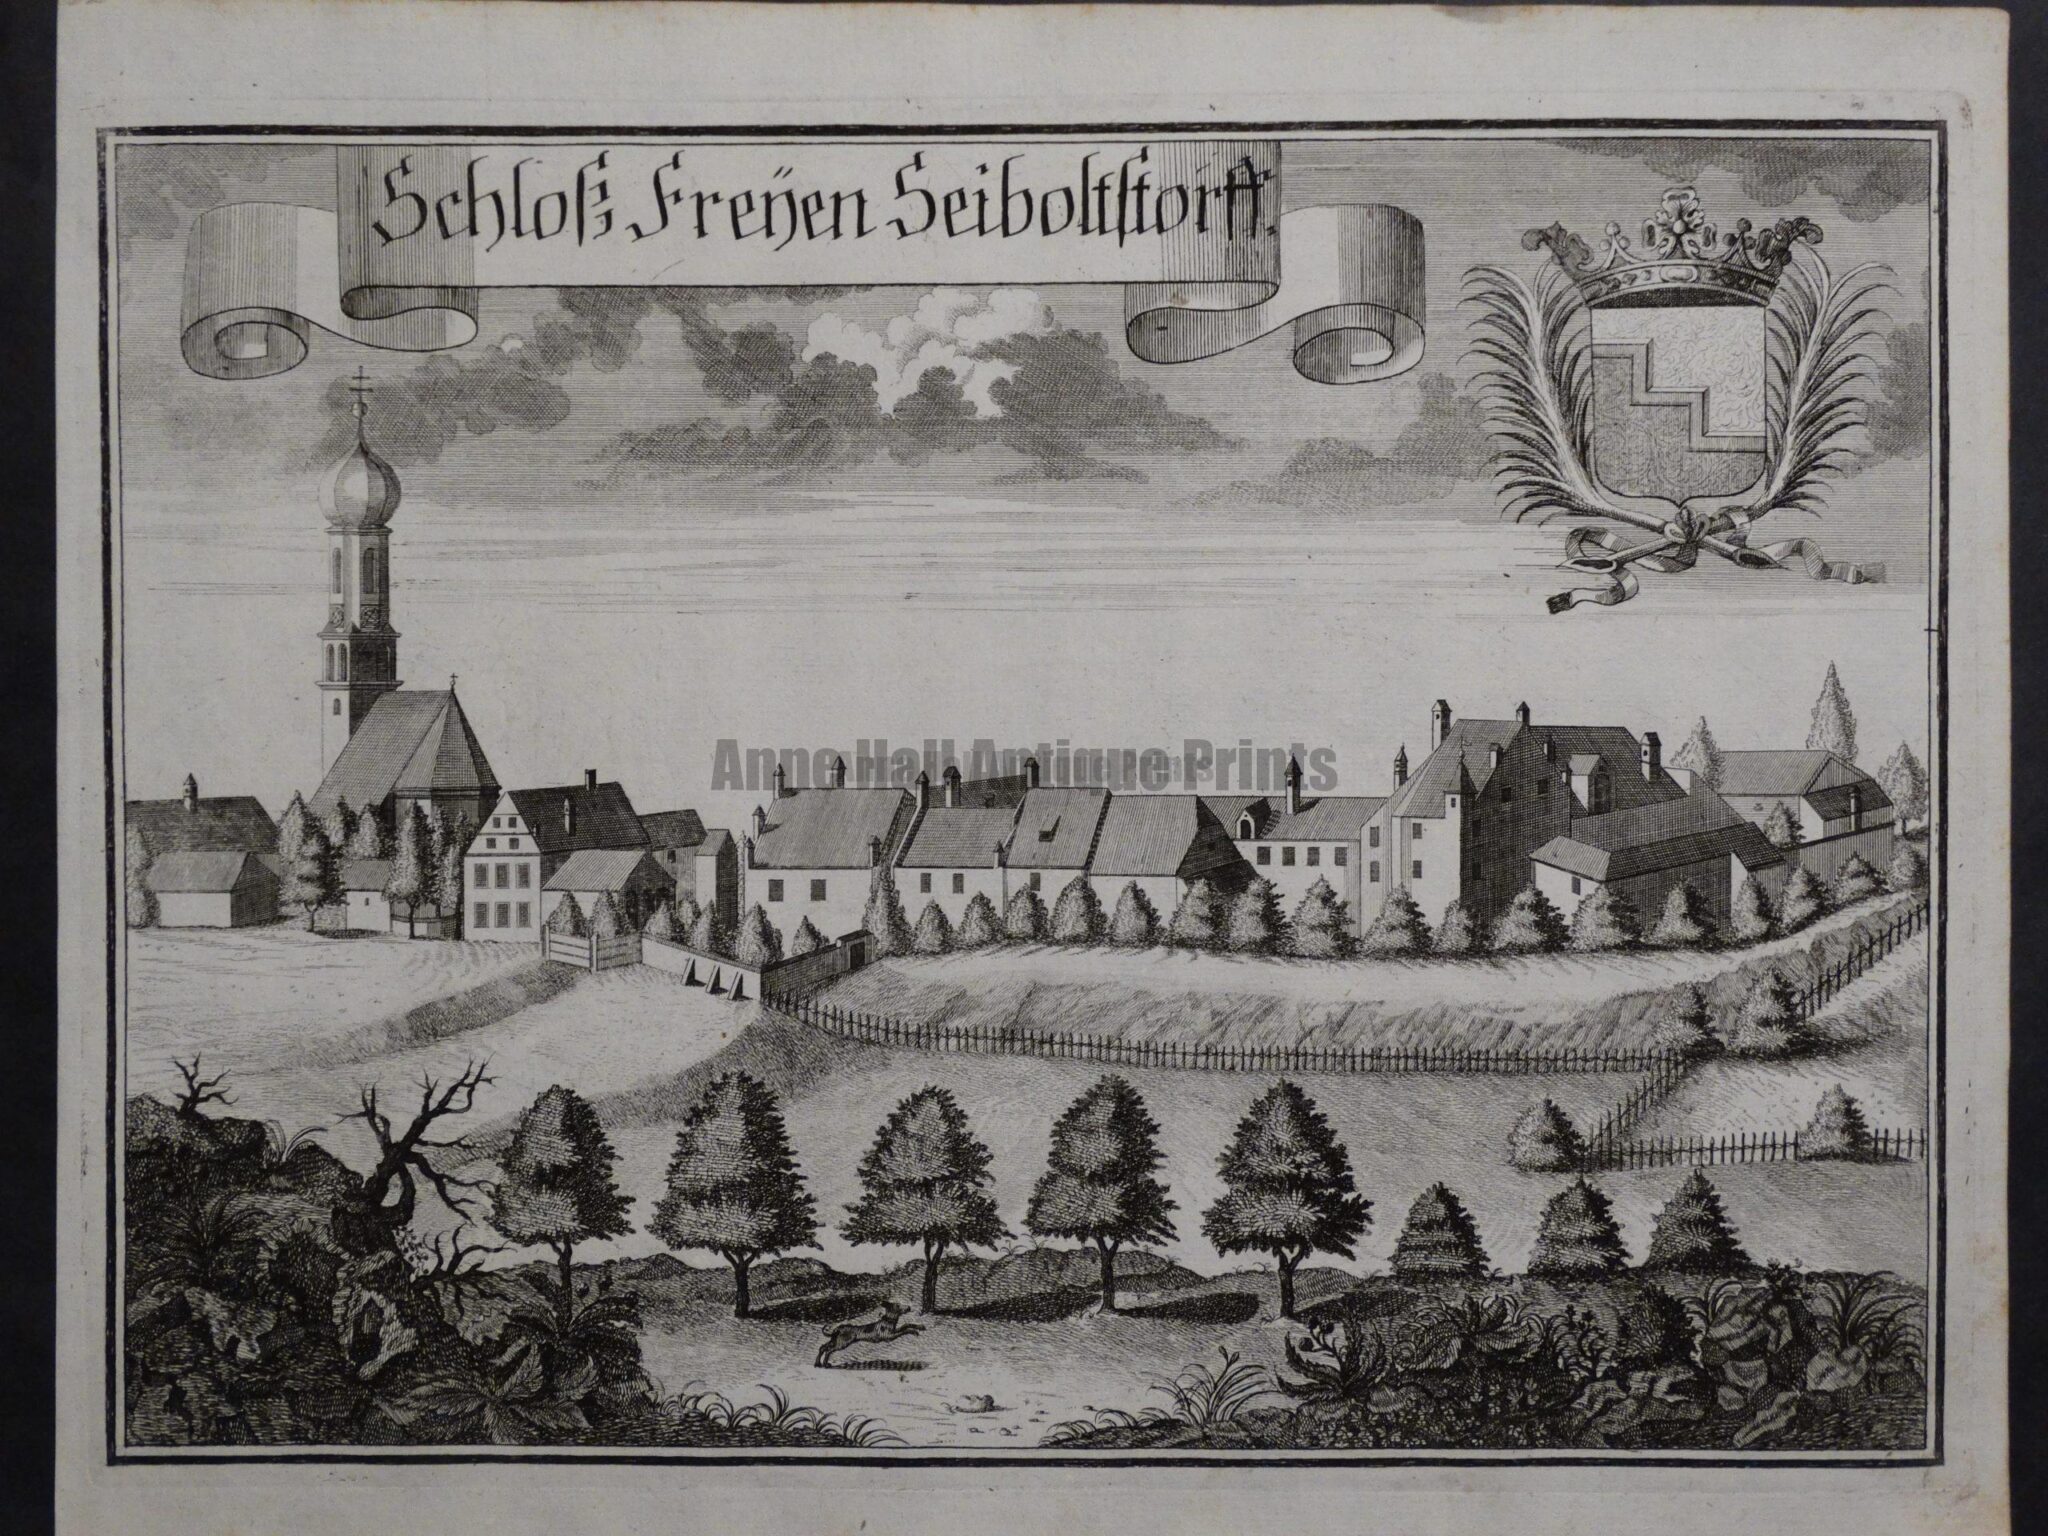 Schloß Freÿen Seiboltstorff.
Anne Hall Antique Prints